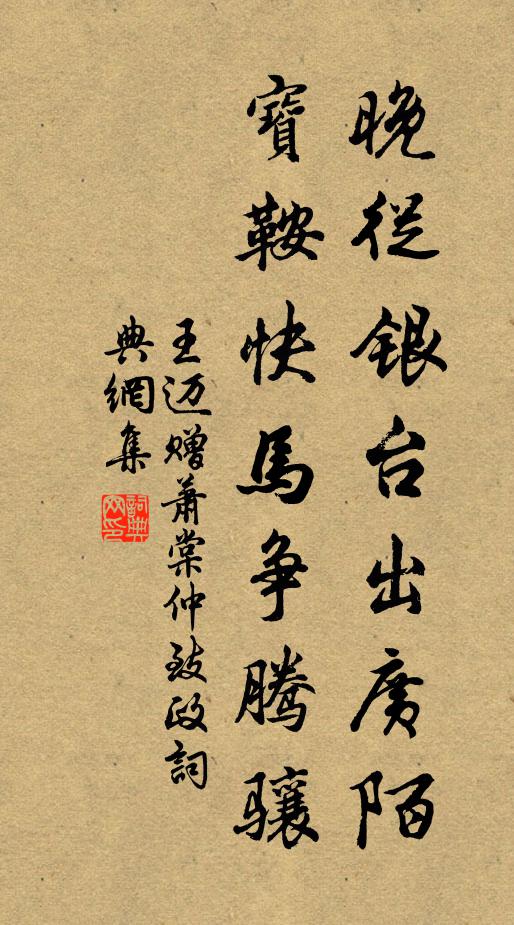 晚從銀台出廣陌
寶鞍快馬争騰驤
王迈赠萧棠仲致政詞
典網集
詞典网印